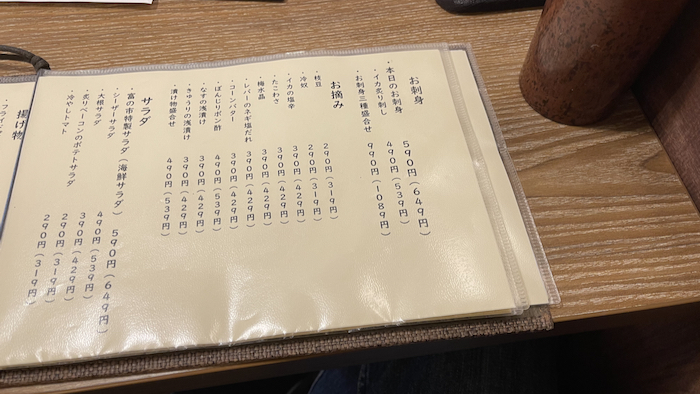 お刺身
・本日のお刺身 590円(649円)
・イカ炙り刺し 490円(539円)
・お刺身三種盛合せ 990円(1089円)
お摘み
・枝豆 290円(319円)
・冷奴 290円(319円)
・イカの塩辛 390円(429円)
・たこわさ 390円(429円)
・梅水晶 390円(429円)
・レバーのネギ塩だれ 390円(429円)
・コーンバター 390円(429円)
・ぼんじりポン酢 490円(539円)
・なすの浅漬け 390円(429円)
・きゅうりの浅漬け 390円(429円)
・漬け物盛合せ 490円(539円)
サラダ
・富の市特製サラダ(海鮮サラダ) 590円(649円)
・シーザーサラダ 490円(539円)
・大根サラダ 390円(429円)
・炙りベーコンのポテトサラダ 290円(319円)
・冷やしトマト 290円(319円)
揚げ物
・フライ